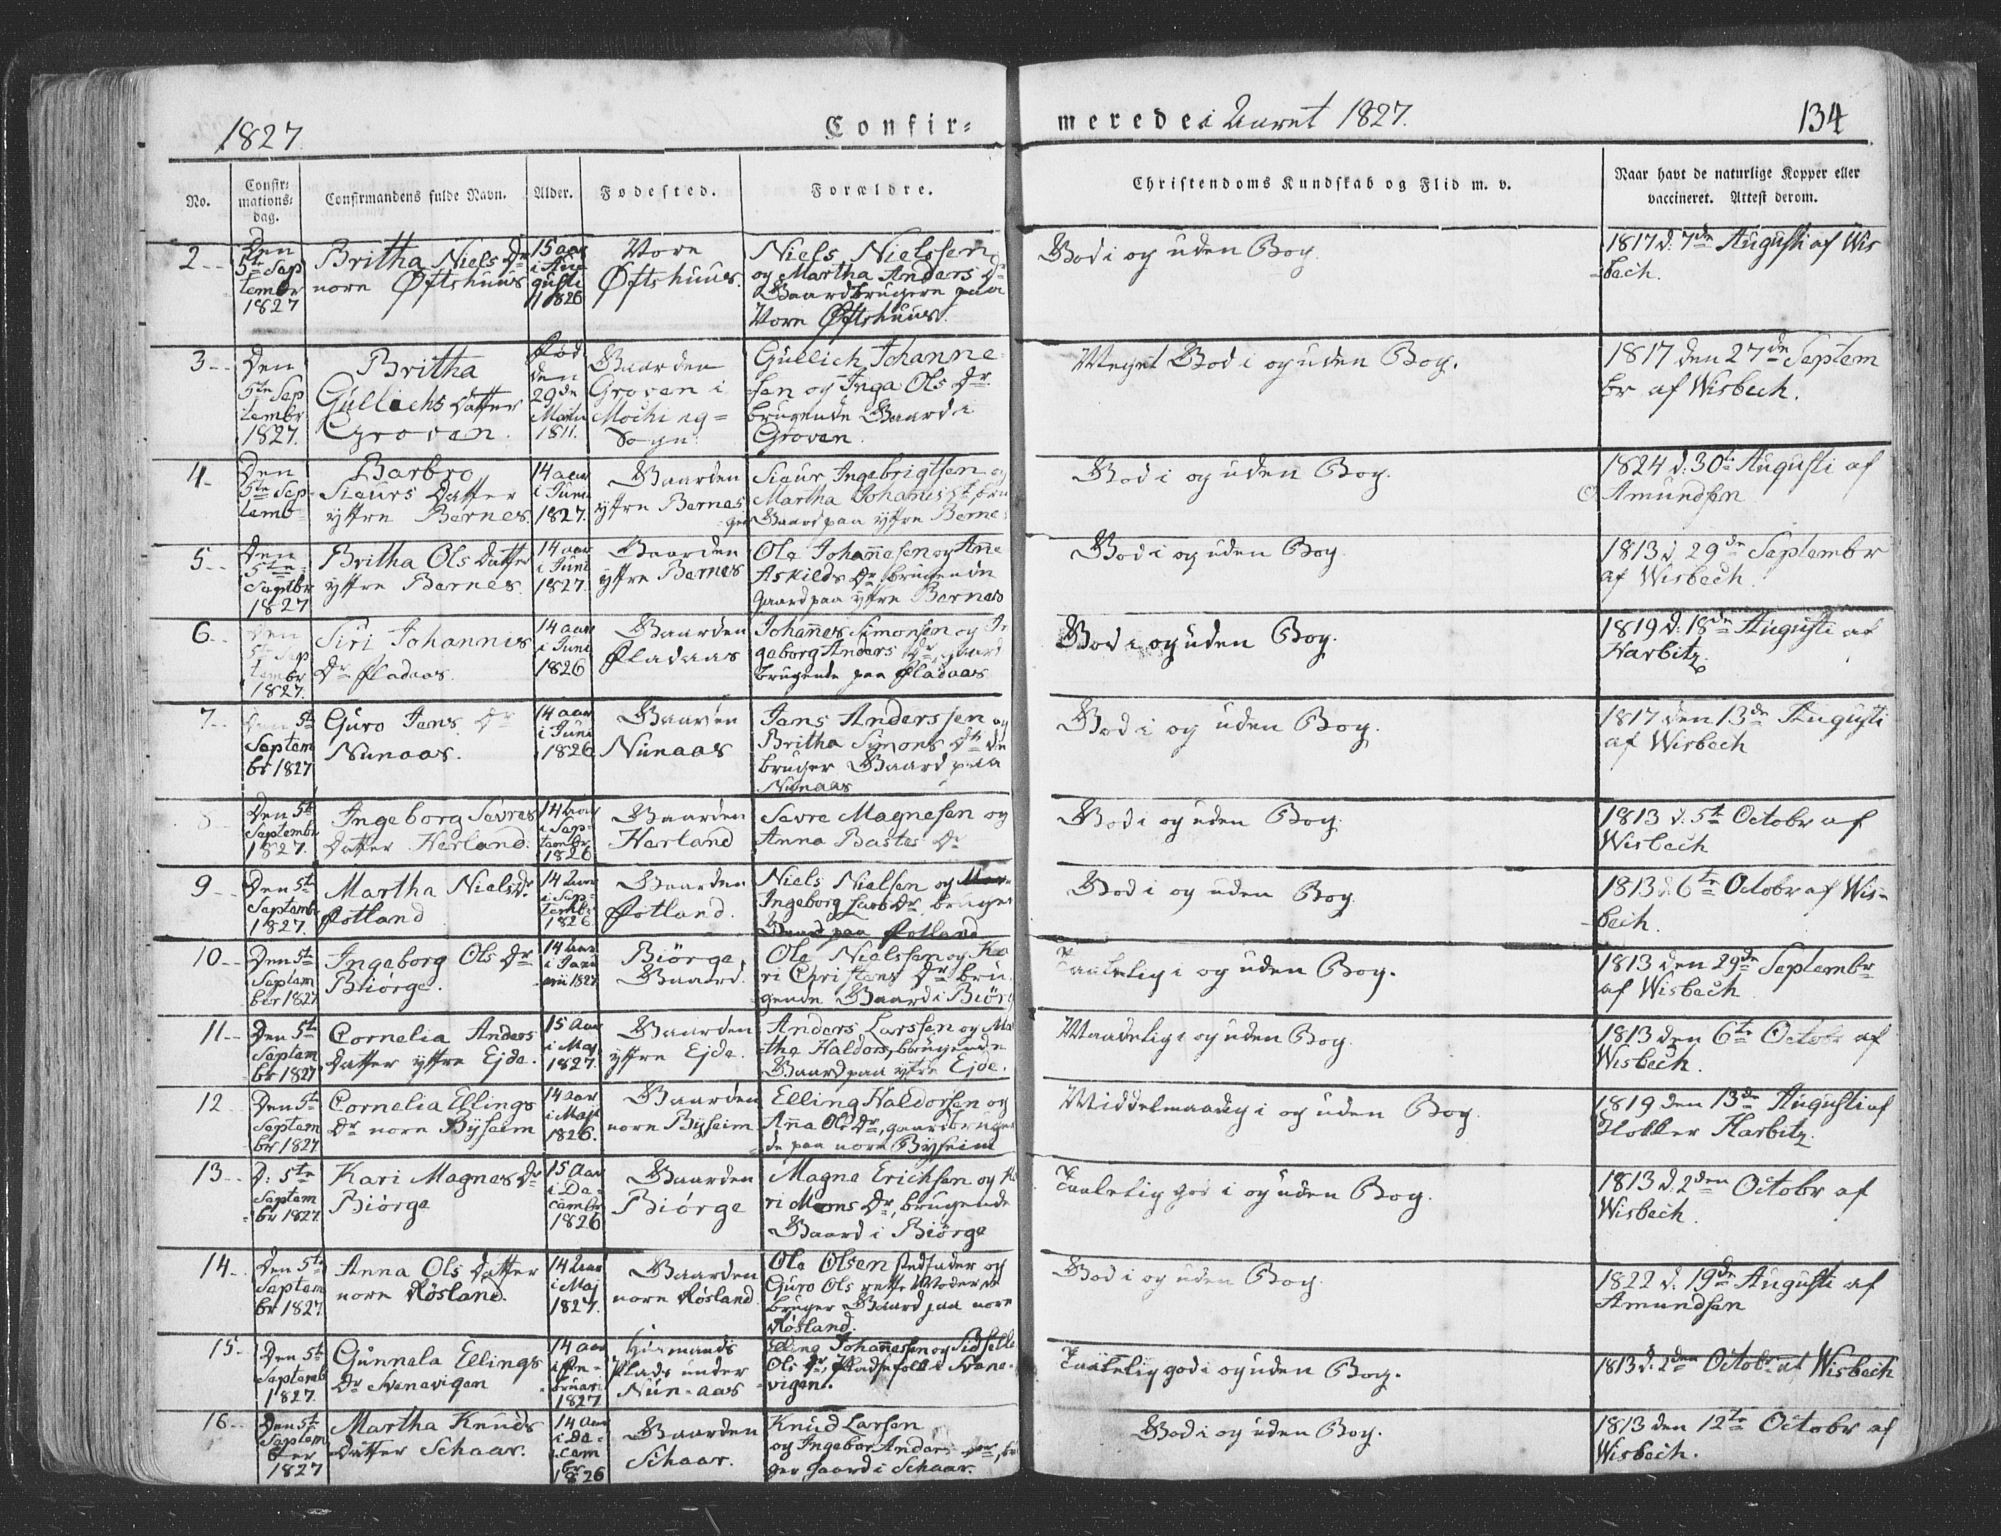 1827.
Confir-
merede i Aaret 1827.
134
No.
Confir-
mations-
dag.
Confirmandens fulde Navn.
Alder.
Fødested.
Forældre.
Christendoms Kundskab og Flid m. v.
Naar havt de naturlige Kopper eller
vaccineret. Attest derom.
2
Den
5te Sep
tembr
1827
Britha Niels Dr
nore Øftshuus
15 aar
i Au
gusti
1826
Nore
Øftshuus.
Niels Nielssen
og Martha Anders Dr
Gaardbrugere paa
Nore Øftshuus.
God i og uden Bog.
1817 d. 7de Augusti af Wis
bech.
3
Den
5te Sep
tembr
1827.
Britha
Gullichs Datter
Groven.
Fød
den
29de
1811.
Gaarden
Groven i
Sogn.
Gullich Johanne-
sen og Inga Ols Dr
brugende Gaard i
Groven.
Meget God i og uden Bog.
1817 den 27de Septem
br af Wisbech.
4
Den
5te Sep-
temb-
Barbro
Siaurs Datter
yttre Bernes.
14 aar
i Juni
1827.
Gaarden
yttre Bernes
Siaur Ingebrigtsen og
Martha Johannis Dr bru
ger Gaard paa yttre Bernes
God i og uden Bog.
1824 d: 30te Augusti af
Amundsen
5
Den
5te
Septbr
1827
Britha Ols Datter
yttre Bernes.
14 aar
i Juni
1827.
Gaarden
yttre Bernes
Ole Johannesen og Ane
Askilds Dr, brugende
gaard paa yttre Bernes
God i og uden Bog.
1813 d. 29de Septembr
af Wisbech.
6
Den
5te Sep
tembr
1827.
Siri Johannis
Dr Fladaas.
14 aar
i Juni
1826
Gaarden
Fladaas
Johannes Simonsen og In
geborg Anders Dr, gaard
brugende paa Fladaas
God i og uden Bog.
1819 d. 18de Augusti af
Harbitz
7
Den 5te
Septem
br 1827
Guro Jens Dr
Nunaas.
14 aar
i Juni
1826
Gaarden
Nunaas
Jens Anderssen og
Britha Simons Dr de
bruger Gaard paa
Nunaas
God i og uden Bog.
1817 den 13de Augusti
af Wisbech
8
Den 5te
Septembr
1827.
Ingeborg Sevres
Datter Herland.
14 Aar
i Sep-
tembr
1826
Gaarden
Herland
Sevre Magnesen og
Anna Bastes Dr
God i og uden Bog.
1813 d. 5te Octobr af
Wisbech
9
Den 5te
Septembr
1827.
Martha Niels Dr
Fotland
14 Aar
i Sep-
tembr
1826
Gaarden
Fotland.
Niels Nielsen og
Ingeborg Lars Dr bruger
Gaard paa Fotland
God i og uden Bog
1813 d. 6te Octobr af Wis-
bech.
10
Den 5te
Septem
ber 1827
Ingeborg Ols Dr
Biørge.
14 Aar
i Janu
arii 1827
Biørge
Gaard.
Ole Nielssen og Ka
ri Christens Dr bru
gende Gaard i Biørge
Taalelig i og uden Bog.
1813 den 29de Septembr
af Wisbech
11
Den 5te
Septem
br 1827
Cornelia Anders
Datter yttre Ejde.
15 Aar
i Maj
1827.
Gaarden
yttre Ejde.
Anders Larssen og Ma
tha Haldors, brugende
Gaard paa yttre Ejde.
Maadelig i og uden Bog.
1813 den 6te Octobr af
Wisbech.
12
Den 5te
Septem
br 1827
Cornelia Ellings
Dr nore Byseim
14 aar
i Maji
1826.
Gaarden
nore Byseim
Elling Haldorsen og
Anna Ols Dr, gaardbrugen
de paa nore Byseim
Middelmaadig i og uden Bog.
1819 den 13de Augusti af
Harbitz.
13
D: 5te
Septem
br 1827
Kari Magnes Dr
Biørge
15 Aar
i De-
cembr
1826
Gaarden
Biørge
Magne Erichsen og Ka
ri Mons Dr, brugende
Gaard i Biørge
Taalelig god i og uden Bog.
1813 d. 2den Octobr af
Wisbech.
14
Den 5te
Septem
br 1827
Anna Ols Datter
nore Røsland.
14 Aar
i Maj
1827.
Gaarden
nore Røsland
Ole Olsen stedfader og
Guro Ols rette Moder de
bruger Gaard paa nore
Røsland.
God i og uden Bog.
1822 d. 19de Augusti af
Amundsen
15
Den 5te
Septemb
1827.
Gunnela Ellings
Dr Svenevigen
14 aar
i Fe-
bruari
1827
Huusmands
Plads under
Nun-aas
Elling Johannesen og Sidselle
Ols Dr, Pladsefolk i Svene-
vigen.
Taalelig god i og uden Bog.
1813 d. 2den Octobr af Wisbech
16
Den 5te
Septem
ber
1827
Martha Knuds
Datter Schaar.
14 Aar
i De-
cem
br
1826
Gaarden
Schaar.
Knud Larsen
og Ingebor Anders Dr, bru
ger gaard i Schaar.
God i og uden Bog.
1813 den 12te Octobr af
Wisbech.